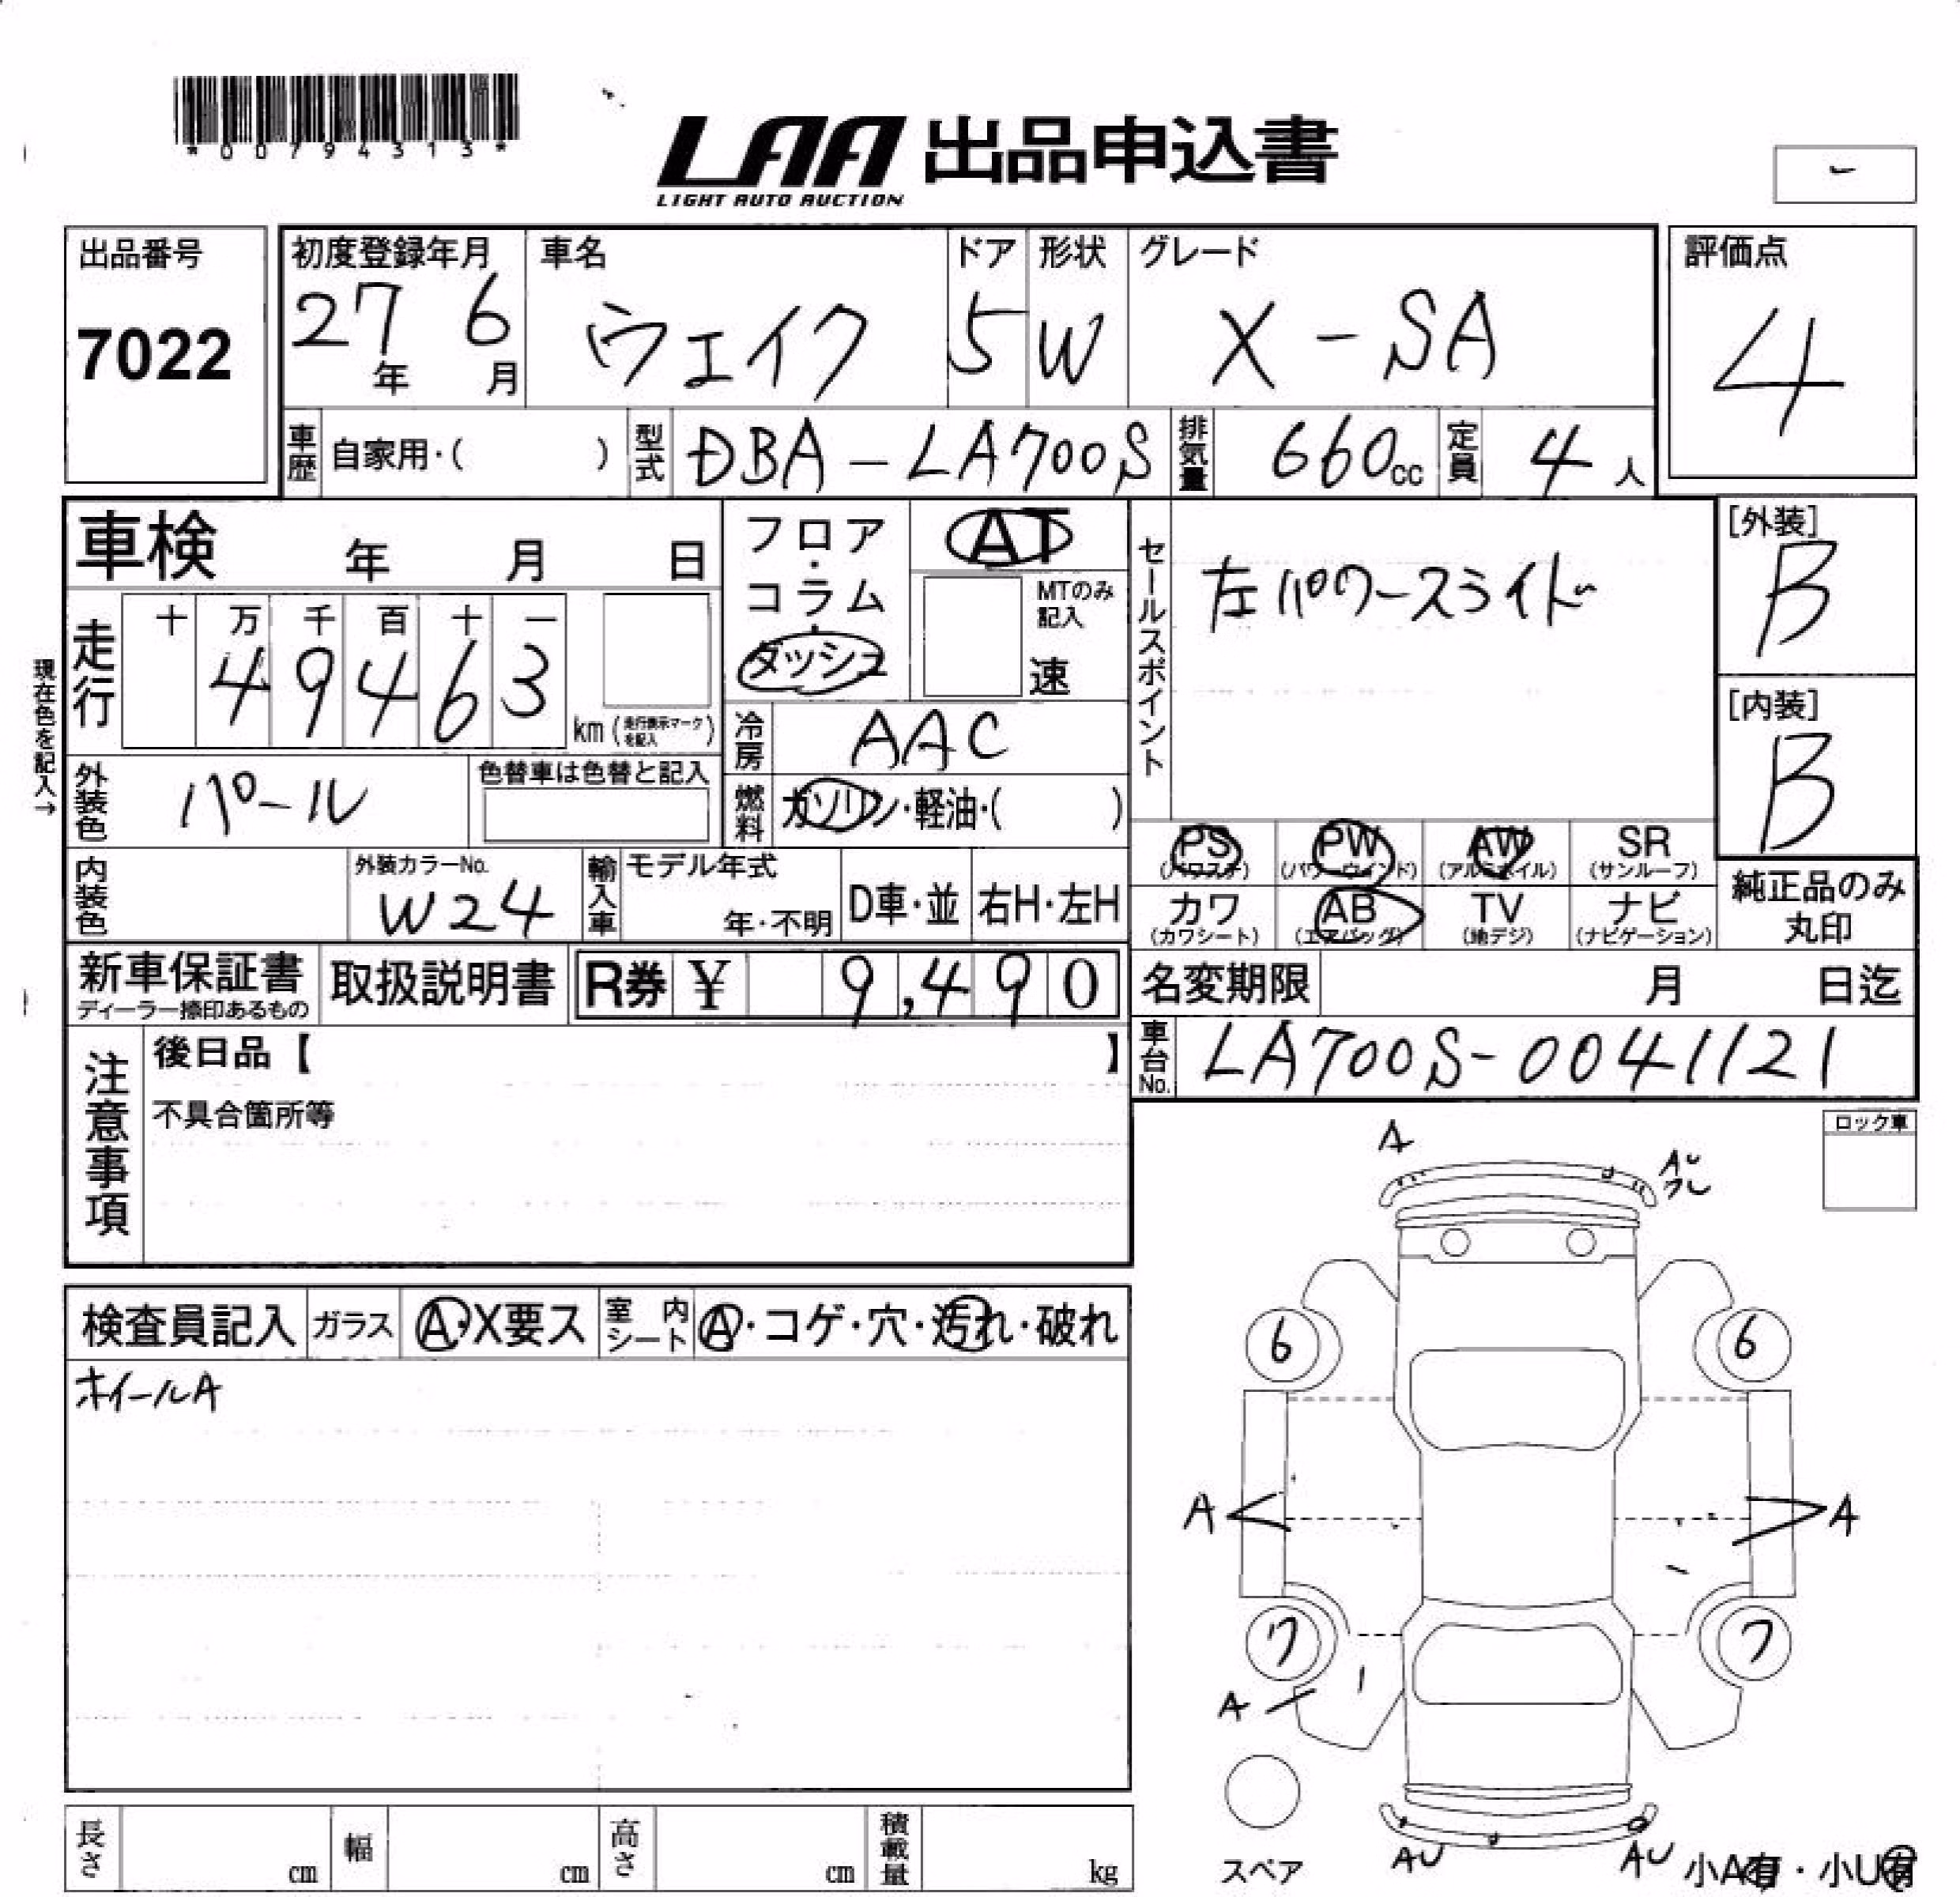 *00794313*
LAA 出品申込書
LIGHT AUTO AUCTION
出品番号
7022
初度登録年月
27年 6月
車名
ウェイク
ドア
5
形状
W
グレード
X-SA
評価点
4
車歴 自家用・( )
型式 DBA-LA700S
排気量 660cc
定員 4人
車検 年 月 日
フロア・コラム・ダッシュ
AT
MTのみ記入
速
セールスポイント
左パワースライド
[外装]
B
[内装]
B
現在色を記入→
走行
十 万 千 百 十 一
4 9 4 6 3
km (走行表示マークを記入)
冷房 AAC
外装色 パール
色替車は色替と記入
燃料 ガソリン・軽油・( )
内装色
外装カラーNo.
W24
輸入車 モデル年式
年・不明
D車・並
右H・左H
PS (パワステ)
PW (パワーウィンド)
AW (アルミホイル)
SR (サンルーフ)
カワ (カワシート)
AB (エアバッグ)
TV (地デジ)
ナビ (ナビゲーション)
純正品のみ丸印
新車保証書
ディーラー捺印あるもの
取扱説明書
R券 ¥ 9,490
名変期限 月 日迄
車台No. LA700S-0041121
注意事項
後日品【 】
不具合箇所等
ロック車
検査員記入
ガラス A・X要ス
室内シート A・コゲ・穴・汚れ・破れ
ホイールA
A
AU
6
6
A
A
7
7
A
スペア
AU
AU
小A有・小U有
長さ cm
幅 cm
高さ cm
積載量 kg